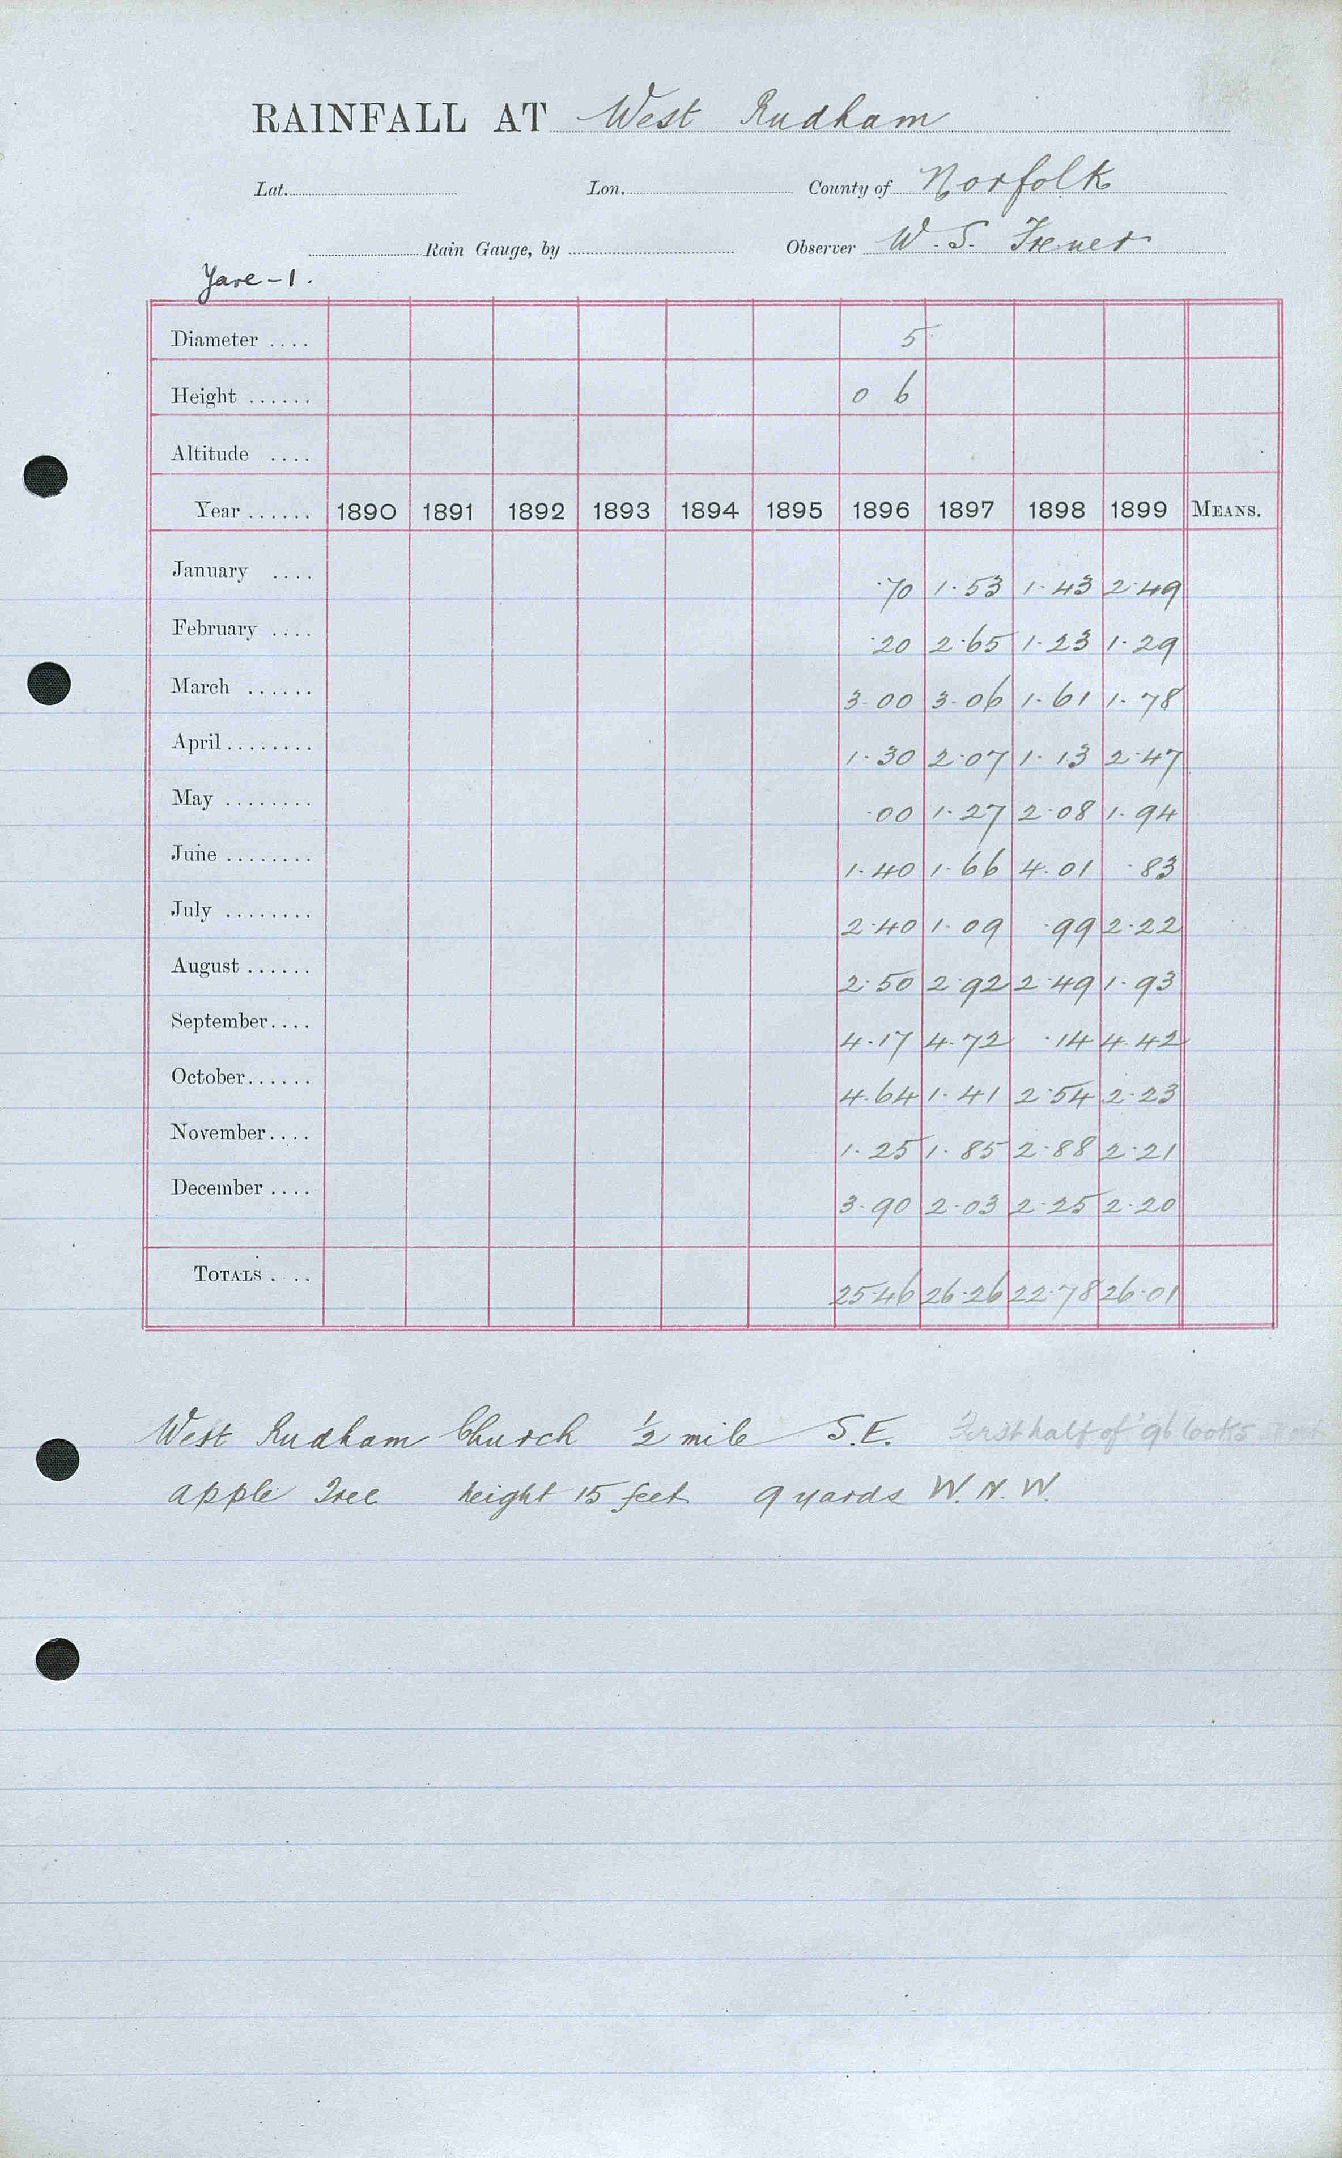 RAINFALL AT West Rudham
Lat. Lon. County of Norfolk
Rain Gauge, by Observer W. S.
Yare - 1.
Diameter .... 5
Height ...... 0 6
Altitude ....
Year ...... 1890 1891 1892 1893 1894 1895 1896 1897 1898 1899 MEANS.
January .... ·70 1·53 1·43 2·49
February .... ·20 2·65 1·23 1·29
March ...... 3·00 3·06 1·61 1·78
April ........ 1·30 2·07 1·13 2·47
May ........ ·00 1·27 2·08 1·94
June ........ 1·40 1·66 4·01 ·83
July ........ 2·40 1·09 ·99 2·22
August ...... 2·50 2·92 2·49 1·93
September.... 4·17 4·72 ·14 4·42
October...... 4·64 1·41 2·54 2·23
November.... 1·25 1·85 2·88 2·21
December .... 3·90 2·03 2·25 2·20
TOTALS .... 25·46 26·26 22·78 26·01
West Rudham Church ½ mile S.E. First half of '96 looks
apple Tree height 15 feet 9 yards W.N.W.